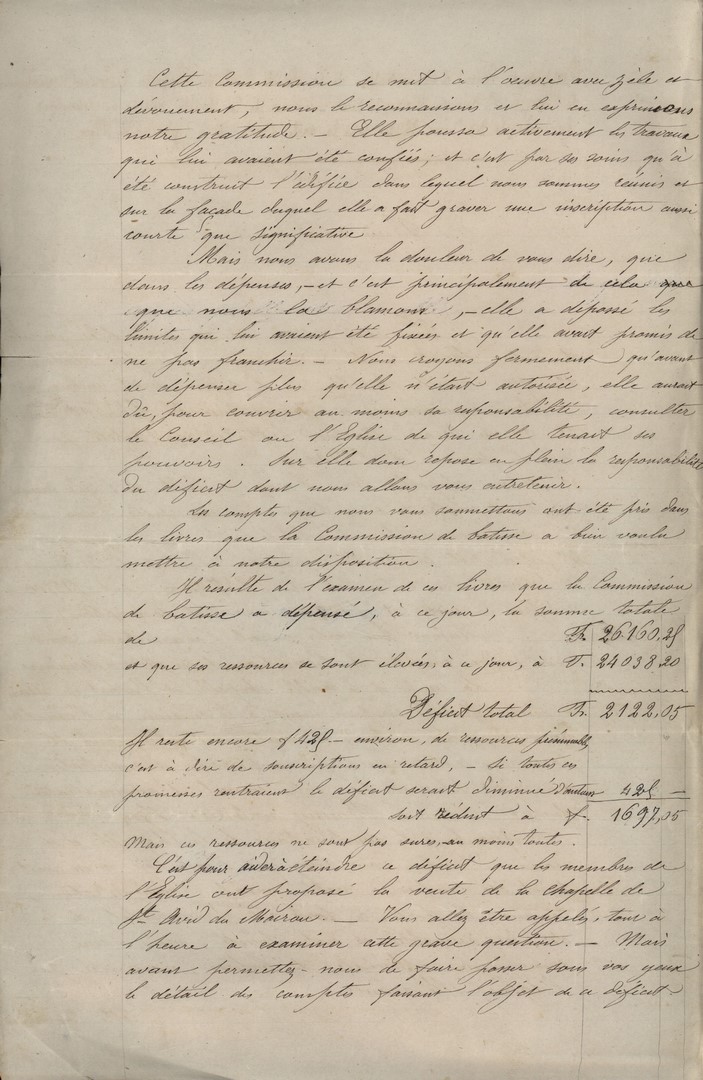 Cette Commission se mit à l'oeuvre avec zèle et
dévouement, nous le reconnaissons et lui en exprimons
notre gratitude. — Elle poussa activement les travaux
qui lui avaient été confiés; et c'est par ses soins qu'à
été construit l'édifice dans lequel nous sommes réunis et
sur la façade duquel elle a fait graver une inscription aussi
courte que significative
Mais nous avons la douleur de vous dire, que
dans les dépenses, — et c'est principalement de cela que
que nous la blamons, — elle a dépassé les
limites qui lui avaient été fixées et qu'elle avait promis de
ne pas franchir. — Nous croyons fermement qu'avant
de dépenser plus qu'elle n'était autorisée, elle aurait
dû, pour couvrir au moins sa responsabilité, consulter
le Conseil ou l'Eglise de qui elle tenait ses
pouvoirs. Sur elle donc repose en plein la responsabilité
du déficit dont nous allons vous entretenir.
Les comptes que nous vous soumettons ont été pris dans
les livres que la Commission de batisse a bien voulu
mettre à notre disposition.
Il résulte de l'examen de ces livres que la Commission
de batisse a dépensé, à ce jour, la somme totale
de Fr. 26160,25
et que ses ressources se sont élevées, à ce jour, à F. 24038,20
Déficit total Fr. 2122,05
Il reste encore f 425 — environ, de ressources
c'est à dire de souscriptions en retard, — si toutes ces
promesses rentraient le déficit serait diminué d'autant 425 —
soit réduit à f. 1697,05
Mais ces ressources ne sont pas sures, au moins toutes.
C'est pour aider à éteindre ce déficit que les membres de
l'Eglise ont proposé la vente de la chapelle de
St. Avid du Moiron. — Vous allez être appelés, tout à
l'heure à examiner cette grave question. — Mais
avant permettez-nous de faire passer sous vos yeux
le détail des comptes faisant l'objet de ce déficit.